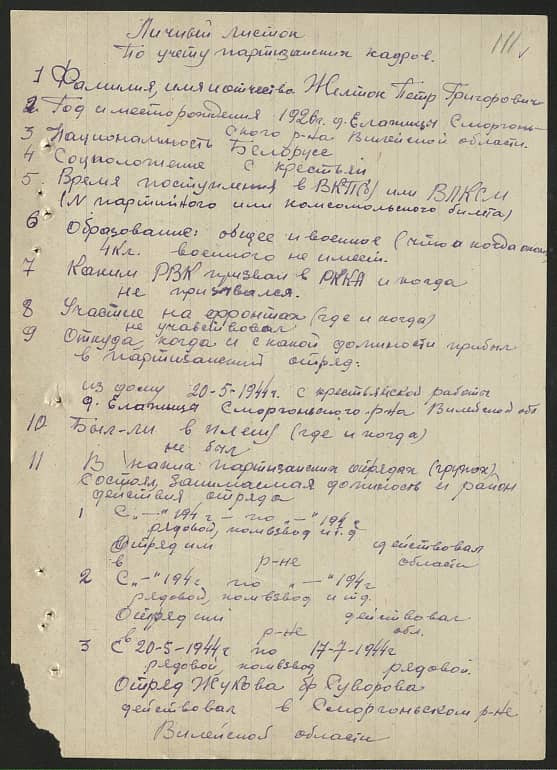 Личный листок
По учету партизанских кадров.
1 Фамилия, имя и отчество Желток Петр Григорович
2. Год и место рождения 1926г. д. Елашица Сморгонь-
ского р-на Вилейской области.
3 Национальность Белорусс
4 Соцположение с крестьян
5 Время поступления в ВКП(б) или ВЛКСМ
(N партийного или комсомольского билета)
6 Образование: общее и военное (что и когда окон.)
4 кл. военного не имеет.
7 Каким РВК призван в РККА и когда
не призывался.
8 Участие на фронтах (где и когда)
не участвовал
9 Откуда, когда и с какой должности прибыл
в партизанский отряд:
из дому 20-5-1944г. с крестьянской работы
д. Елашица Сморгоньского р-на Вилейской обл
10 Был-ли в плену (где и когда)
не был
11 В каких партизанских отрядах (группах)
состоял, занимаемая должность и район
действия отряда
1 С „—" 194 г – по „—" 194 г
рядовой, комвзвод и т.д
Отряд им действовал
в р-не области
2 С „—" 194г по „—" 194г
рядовой, комвзвод и тд.
Отряд им действовал
в р-не обл.
3 С 20-5-1944г по 17-7-1944г
рядовой, комвзвод рядовой.
Отряд Жукова бр Суворова
действовал в Сморгоньском р-не
Вилейской области